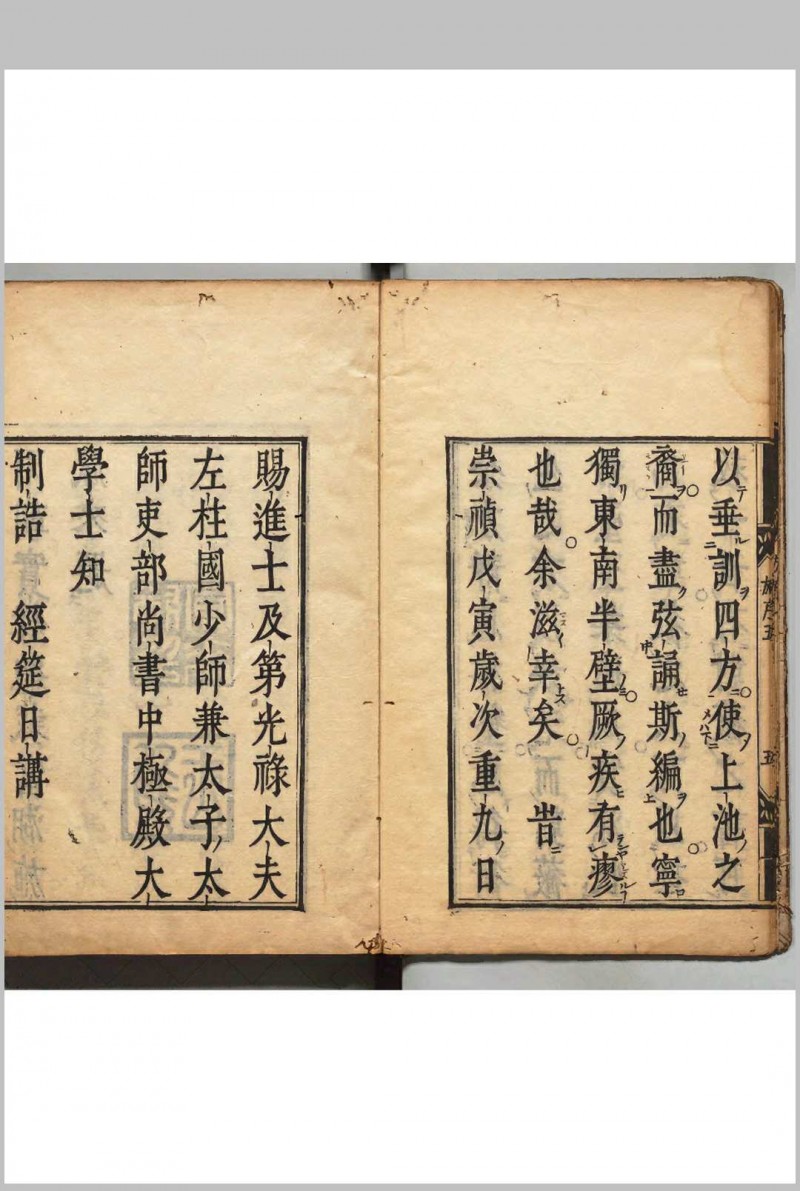 以垂訓四方使上池之
裔而盡弦誦斯編也寧
獨東南半壁厥疾有瘳
也哉余滋幸矣 旹
崇禎戊寅歲次重九日
賜進士及第光祿大夫
左柱國少師兼太子太
師吏部尚書中極殿大
學士知
制誥 經筵日講